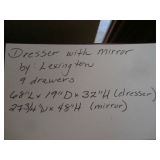 Dresser with mirror
by: Lexington
9 drawers
68"L x 19"D x 32"H (dresser)
27 3/4"W x 48"H (mirror)